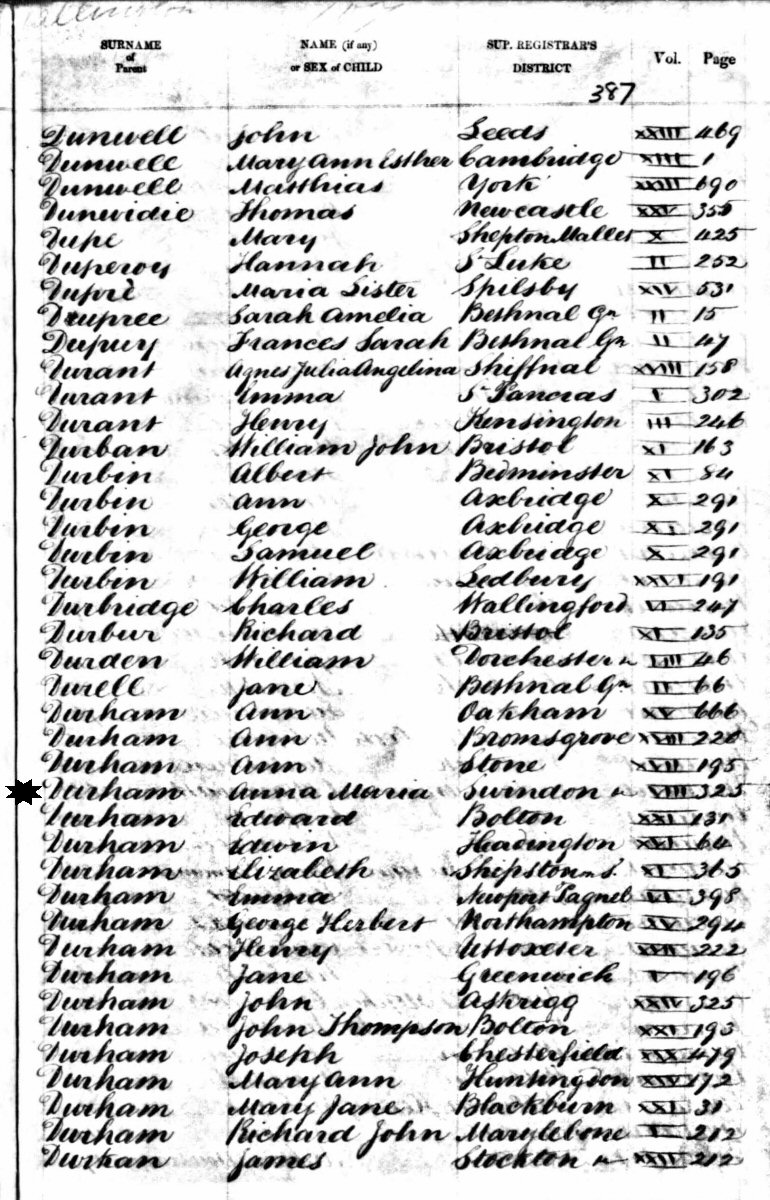 SURNAME of Parent NAME (if any) or SEX of CHILD SUP. REGISTRAR'S DISTRICT Vol. Page
387
Dunwell John Leeds XXIII 469
Dunwell Mary Ann Esther Cambridge XIII 1
Dunwell Matthias York XXIII 690
Dunwidie Thomas Newcastle XXV 355
Dupe Mary Shepton Mallet X 425
Duperoy Hannah St Luke II 252
Dupré Maria Sister Spilsby XIV 531
Drupree Sarah Amelia Bethnal Gn II 15
Dupuy Frances Sarah Bethnal Gn II 47
Durant Agnes Julia Angelina Shiffnal XVIII 158
Durant Emma St Pancras I 302
Durant Henry Kensington III 246
Durban William John Bristol XI 163
Durbin Albert Bedminster XI 84
Durbin Ann Axbridge X 291
Durbin George Axbridge X 291
Durbin Samuel Axbridge X 291
Durbin William Ledbury XXVI 191
Durbridge Charles Wallingford VI 247
Durbur Richard Bristol XI 135
Durden William Dorchester VIII 46
Durell Jane Bethnal Gn II 66
Durham Ann Oakham XV 666
Durham Ann Bromsgrove XVIII 220
Durham Ann Stone XVII 195
Durham Anna Maria Swindon VIII 325
Durham Edward Bolton XXI 131
Durham Edwin Headington XVI 64
Durham Elizabeth Shipston on S. XI 365
Durham Emma Newport Pagnel VI 398
Durham George Herbert Northampton XV 294
Durham Henry Uttoxeter XVII 222
Durham Jane Greenwich V 196
Durham John Askrigg XXIV 325
Durham John Thompson Bolton XXI 193
Durham Joseph Chesterfield XIX 479
Durham Mary Ann Huntingdon XIV 172
Durham Mary Jane Blackburn XXI 31
Durham Richard John Marylebone I 212
Durkan James Stockton XXIV 212